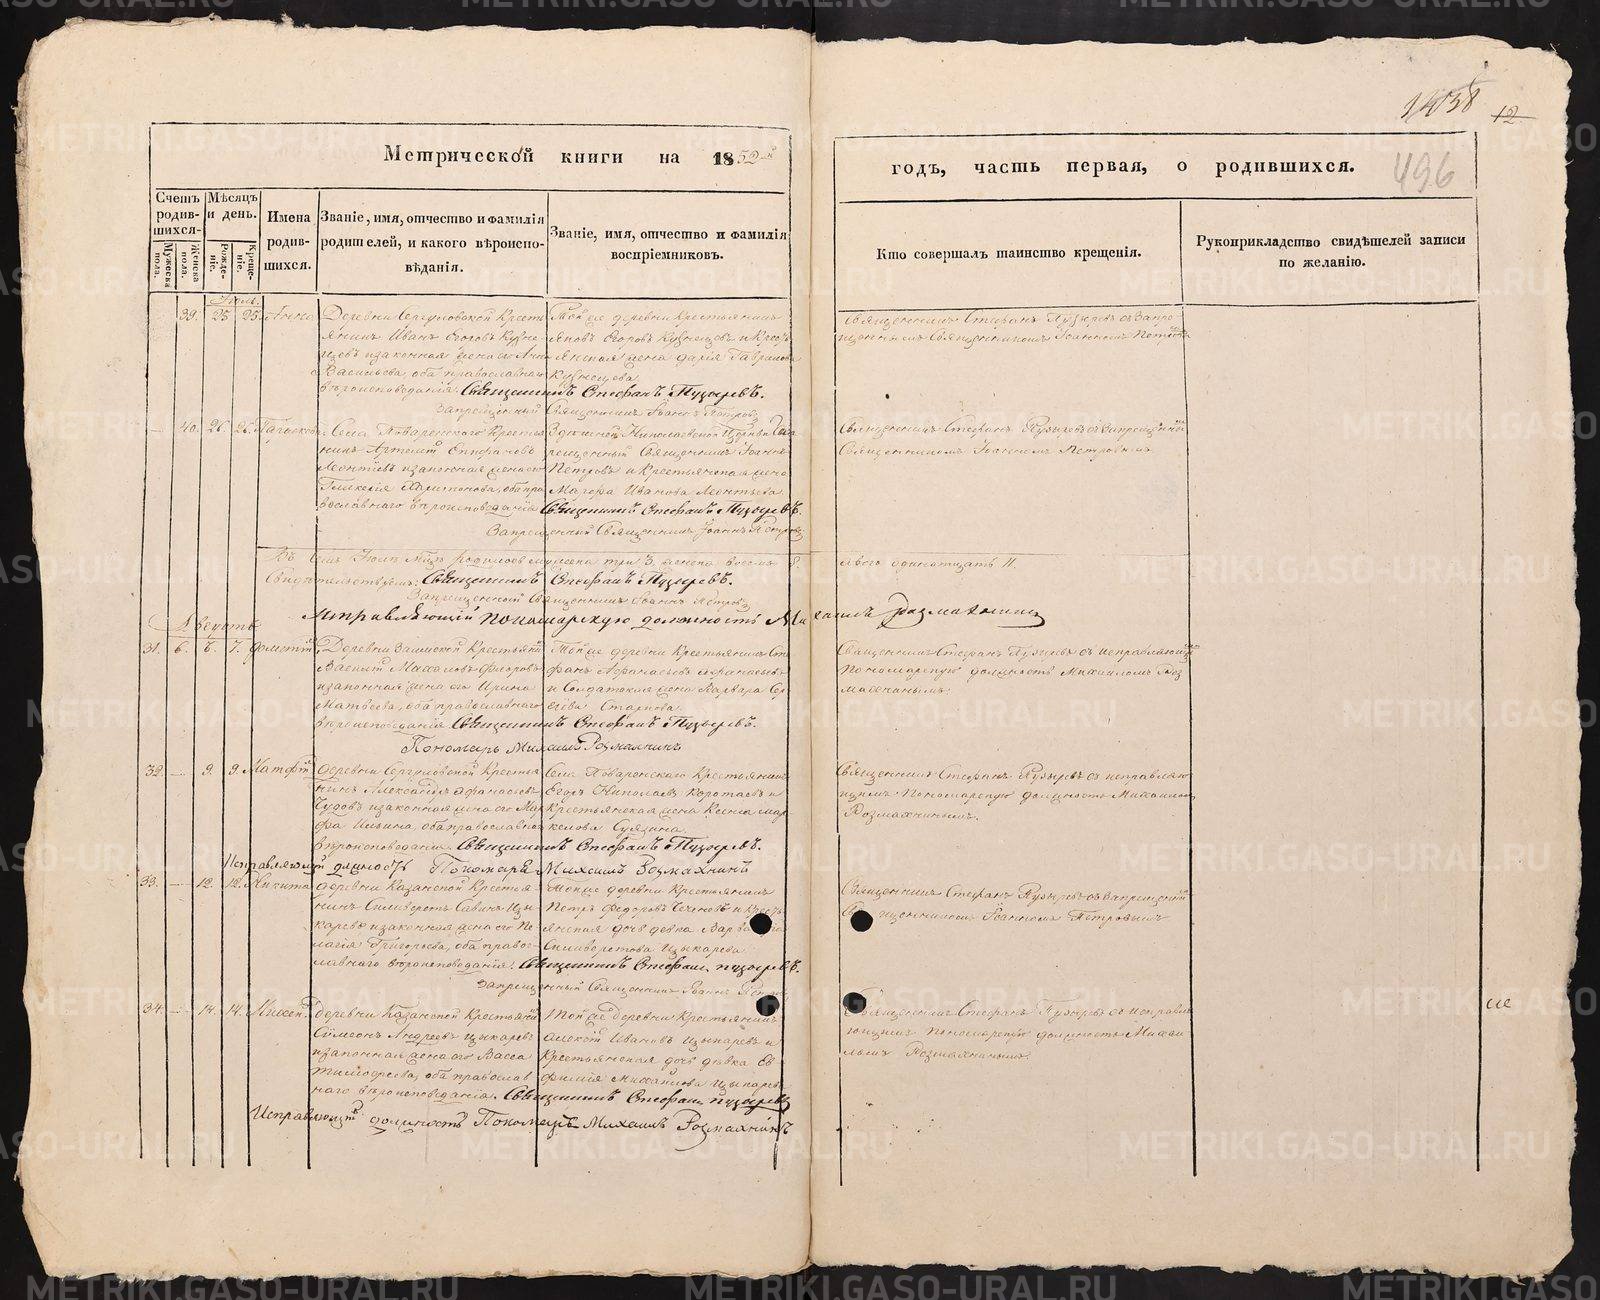 1438
12
496
Метрической книги на 1852й
годъ, часть первая, о родившихся.
Счетъ родившихся.
Мѣсяцъ и день.
Имена родившихся.
Званіе, имя, отчество и фамилія родителей, и какого вѣроисповѣданія.
Званіе, имя, отчество и фамилія воспріемниковъ.
Кто совершалъ таинство крещенія.
Рукоприкладство свидѣтелей записи по желанію.
Мужеска пола.
Женска пола.
Рожденіе.
Крещеніе.
Іюль.
39. 25 25. Анна
Деревни Сергуловской Крестьянинъ Иванъ Егоровъ Кузнецовъ и законная жена его Анна Васильева, оба православнаго вѣроисповѣданія.
Той же деревни Крестьянинъ Егоровъ Кузнецовъ и Крестьянская жена Дарія Гаврилова Кузнецова
Священникъ Стефанъ Пузыревъ съ Запрещеннымъ Священникомъ Іоанномъ Петровымъ
Священникъ Стефанъ Пузыревъ.
Запрещенный Священникъ Іоаннъ Петровъ
40. 26. 26.
Села Поваренскаго Крестьянинъ Артемій Епифановъ Леонтьевъ и законная жена его Гликерія Харитонова, оба православнаго вѣроисповѣданія
Здѣшней Николаевской Церкви Запрещенный Священникъ Іоаннъ Петровъ и Крестьянская жена Иванова Леонтьева
Священникъ Стефанъ Пузыревъ съ Запрещеннымъ Священникомъ Іоанномъ Петровымъ
Священникъ Стефанъ Пузыревъ.
Запрещенный Священникъ Іоаннъ Петровъ
Въ семъ Іюлѣ м-цѣ родилось мужеска три 3. женска восемь 8. а всего одинатцать 11.
Свидѣтельствуемъ: Священникъ Стефанъ Пузыревъ.
Запрещенный Священникъ Іоаннъ Петровъ
Исправляющій пономарскую должность Михаилъ Розмахнинъ
Августъ
31. 6. 7. Дометій
Деревни Крестьянинъ Василій и законная жена его Ирина Матвѣева, оба православнаго вѣроисповѣданія
Той же деревни Крестьянинъ Стефанъ Афанасьевъ и Солдатская жена Варвара Сергѣева
Священникъ Стефанъ Пузыревъ съ исправляющимъ Пономарскую должность Михаиломъ Розмахнинымъ.
Священникъ Стефанъ Пузыревъ.
Пономарь Михаилъ Розмахнинъ
32. — 9. 9. Матфій
Деревни Сергуловской Крестьянинъ Александръ Афанасьевъ Чудовъ и законная жена его Марфа Ильина, оба православнаго вѣроисповѣданія.
Села Поваренскаго Крестьянинъ Егоръ Николаевъ Коротаевъ и Крестьянская жена Ксенія
Священникъ Стефанъ Пузыревъ съ исправляющимъ Пономарскую должность Михаиломъ Розмахнинымъ.
Священникъ Стефанъ Пузыревъ.
Исправляющій должность Пономаря Михаилъ Розмахнинъ
33. — 12. 12. Никита
Деревни Казанской Крестьянинъ Силиверстъ Савинъ Цыкаревъ и законная жена его Пелагія Григорьева, оба православнаго вѣроисповѣданія.
Той же деревни Крестьянинъ Петръ Федоровъ и Крестьянская дочь дѣвка Варвара Силиверстова Цыкарева
Священникъ Стефанъ Пузыревъ съ Запрещеннымъ Священникомъ Іоанномъ Петровымъ
Священникъ Стефанъ Пузыревъ.
Запрещенный Священникъ Іоаннъ Петровъ
34. — 14. 14. Михей.
Деревни Казанской Крестьянинъ Сѵмеонъ Андреевъ Цыкаревъ и законная жена его Васса Тимофеева, оба православнаго вѣроисповѣданія.
Той же деревни Крестьянинъ Алексій Ивановъ Цыкаревъ и Крестьянская дочь дѣвка Евфимія Михайлова Цыкарева
Священникъ Стефанъ Пузыревъ съ исправляющимъ Пономарскую должность Михаиломъ Розмахнинымъ.
Священникъ Стефанъ Пузыревъ
Исправляющій должность Пономаря Михаилъ Розмахнинъ
METRIKI.GASO-URAL.RU